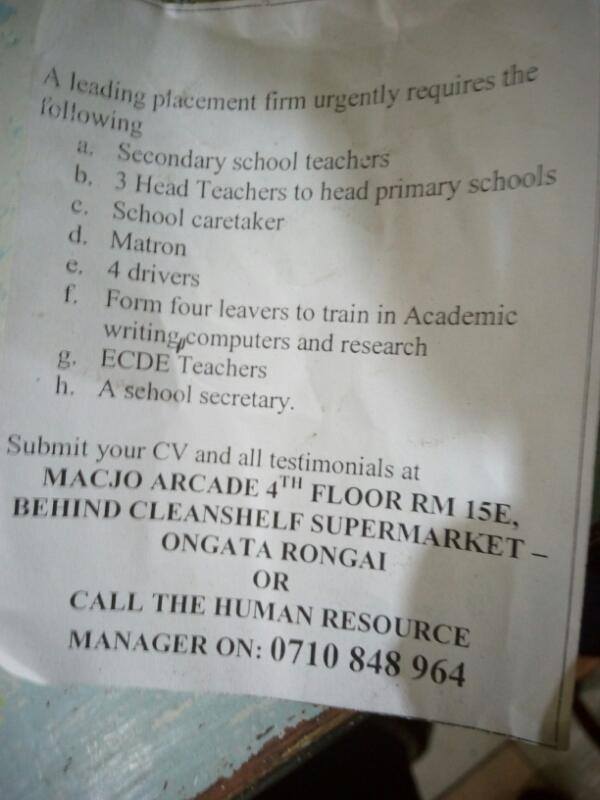 A leading placement firm urgently requires the
following
a. Secondary school teachers
b. 3 Head Teachers to head primary schools
c. School caretaker
d. Matron
e. 4 drivers
f. Form four leavers to train in Academic
writing,computers and research
g. ECDE Teachers
h. A school secretary.
Submit your CV and all testimonials at
MACJO ARCADE 4TH FLOOR RM 15E,
BEHIND CLEANSHELF SUPERMARKET –
ONGATA RONGAI
OR
CALL THE HUMAN RESOURCE
MANAGER ON: 0710 848 964